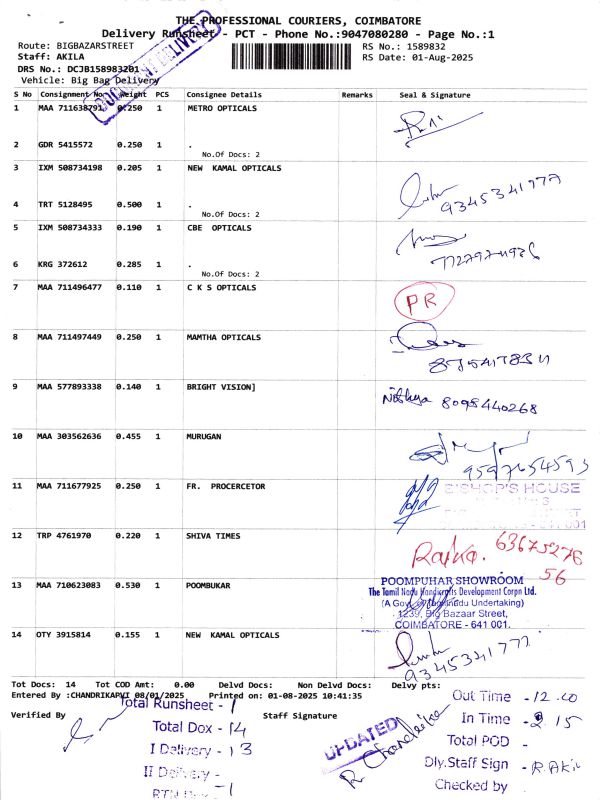 THE PROFESSIONAL COURIERS, COIMBATORE
Delivery Runsheet - PCT - Phone No.:9047080280 - Page No.:1
Route: BIGBAZARSTREET
RS No.: 1589832
Staff: AKILA
RS Date: 01-Aug-2025
DRS No.: DCJB158983201
Vehicle: Big Bag Delivery
DELIVERY
S No Consignment No. Weight PCS Consignee Details Remarks Seal & Signature
1 MAA 711638791 0.250 1 METRO OPTICALS
2 GDR 5415572 0.250 1 .
No.Of Docs: 2
3 IXM 508734198 0.205 1 NEW KAMAL OPTICALS
9345341777
4 TRT 5128495 0.500 1 .
No.Of Docs: 2
5 IXM 508734333 0.190 1 CBE OPTICALS
6 KRG 372612 0.285 1 .
No.Of Docs: 2
7 MAA 711496477 0.110 1 C K S OPTICALS
PR
8 MAA 711497449 0.250 1 MAMTHA OPTICALS
9 MAA 577893338 0.140 1 BRIGHT VISION]
Nithya 8098440268
10 MAA 303562636 0.455 1 MURUGAN
9597654593
11 MAA 711677925 0.250 1 FR. PROCERCETOR
BISHOP'S HOUSE
641 001
12 TRP 4761970 0.220 1 SHIVA TIMES
Rajka. 63675276
56
13 MAA 710623083 0.530 1 POOMBUKAR
POOMPUHAR SHOWROOM
The Tamil Nadu Handicrafts Development Corpn Ltd.
(A Govt. of Tamilnadu Undertaking)
1239, Big Bazaar Street,
COIMBATORE - 641 001.
14 OTY 3915814 0.155 1 NEW KAMAL OPTICALS
9345341777
Tot Docs: 14 Tot COD Amt: 0.00 Delvd Docs: Non Delvd Docs: Delvy pts:
Entered By :CHANDRIKAPVI 08/01/2025 Printed on: 01-08-2025 10:41:35
Verified By
Staff Signature
Total Runsheet - 1
Total Dox - 14
I Delivery - 13
II Delivery -
RTN Dox - 1
UPDATED
R Chandrika
Out Time - 12.00
In Time - 2 15
Total POD -
Dly.Staff Sign - R.Akil
Checked by